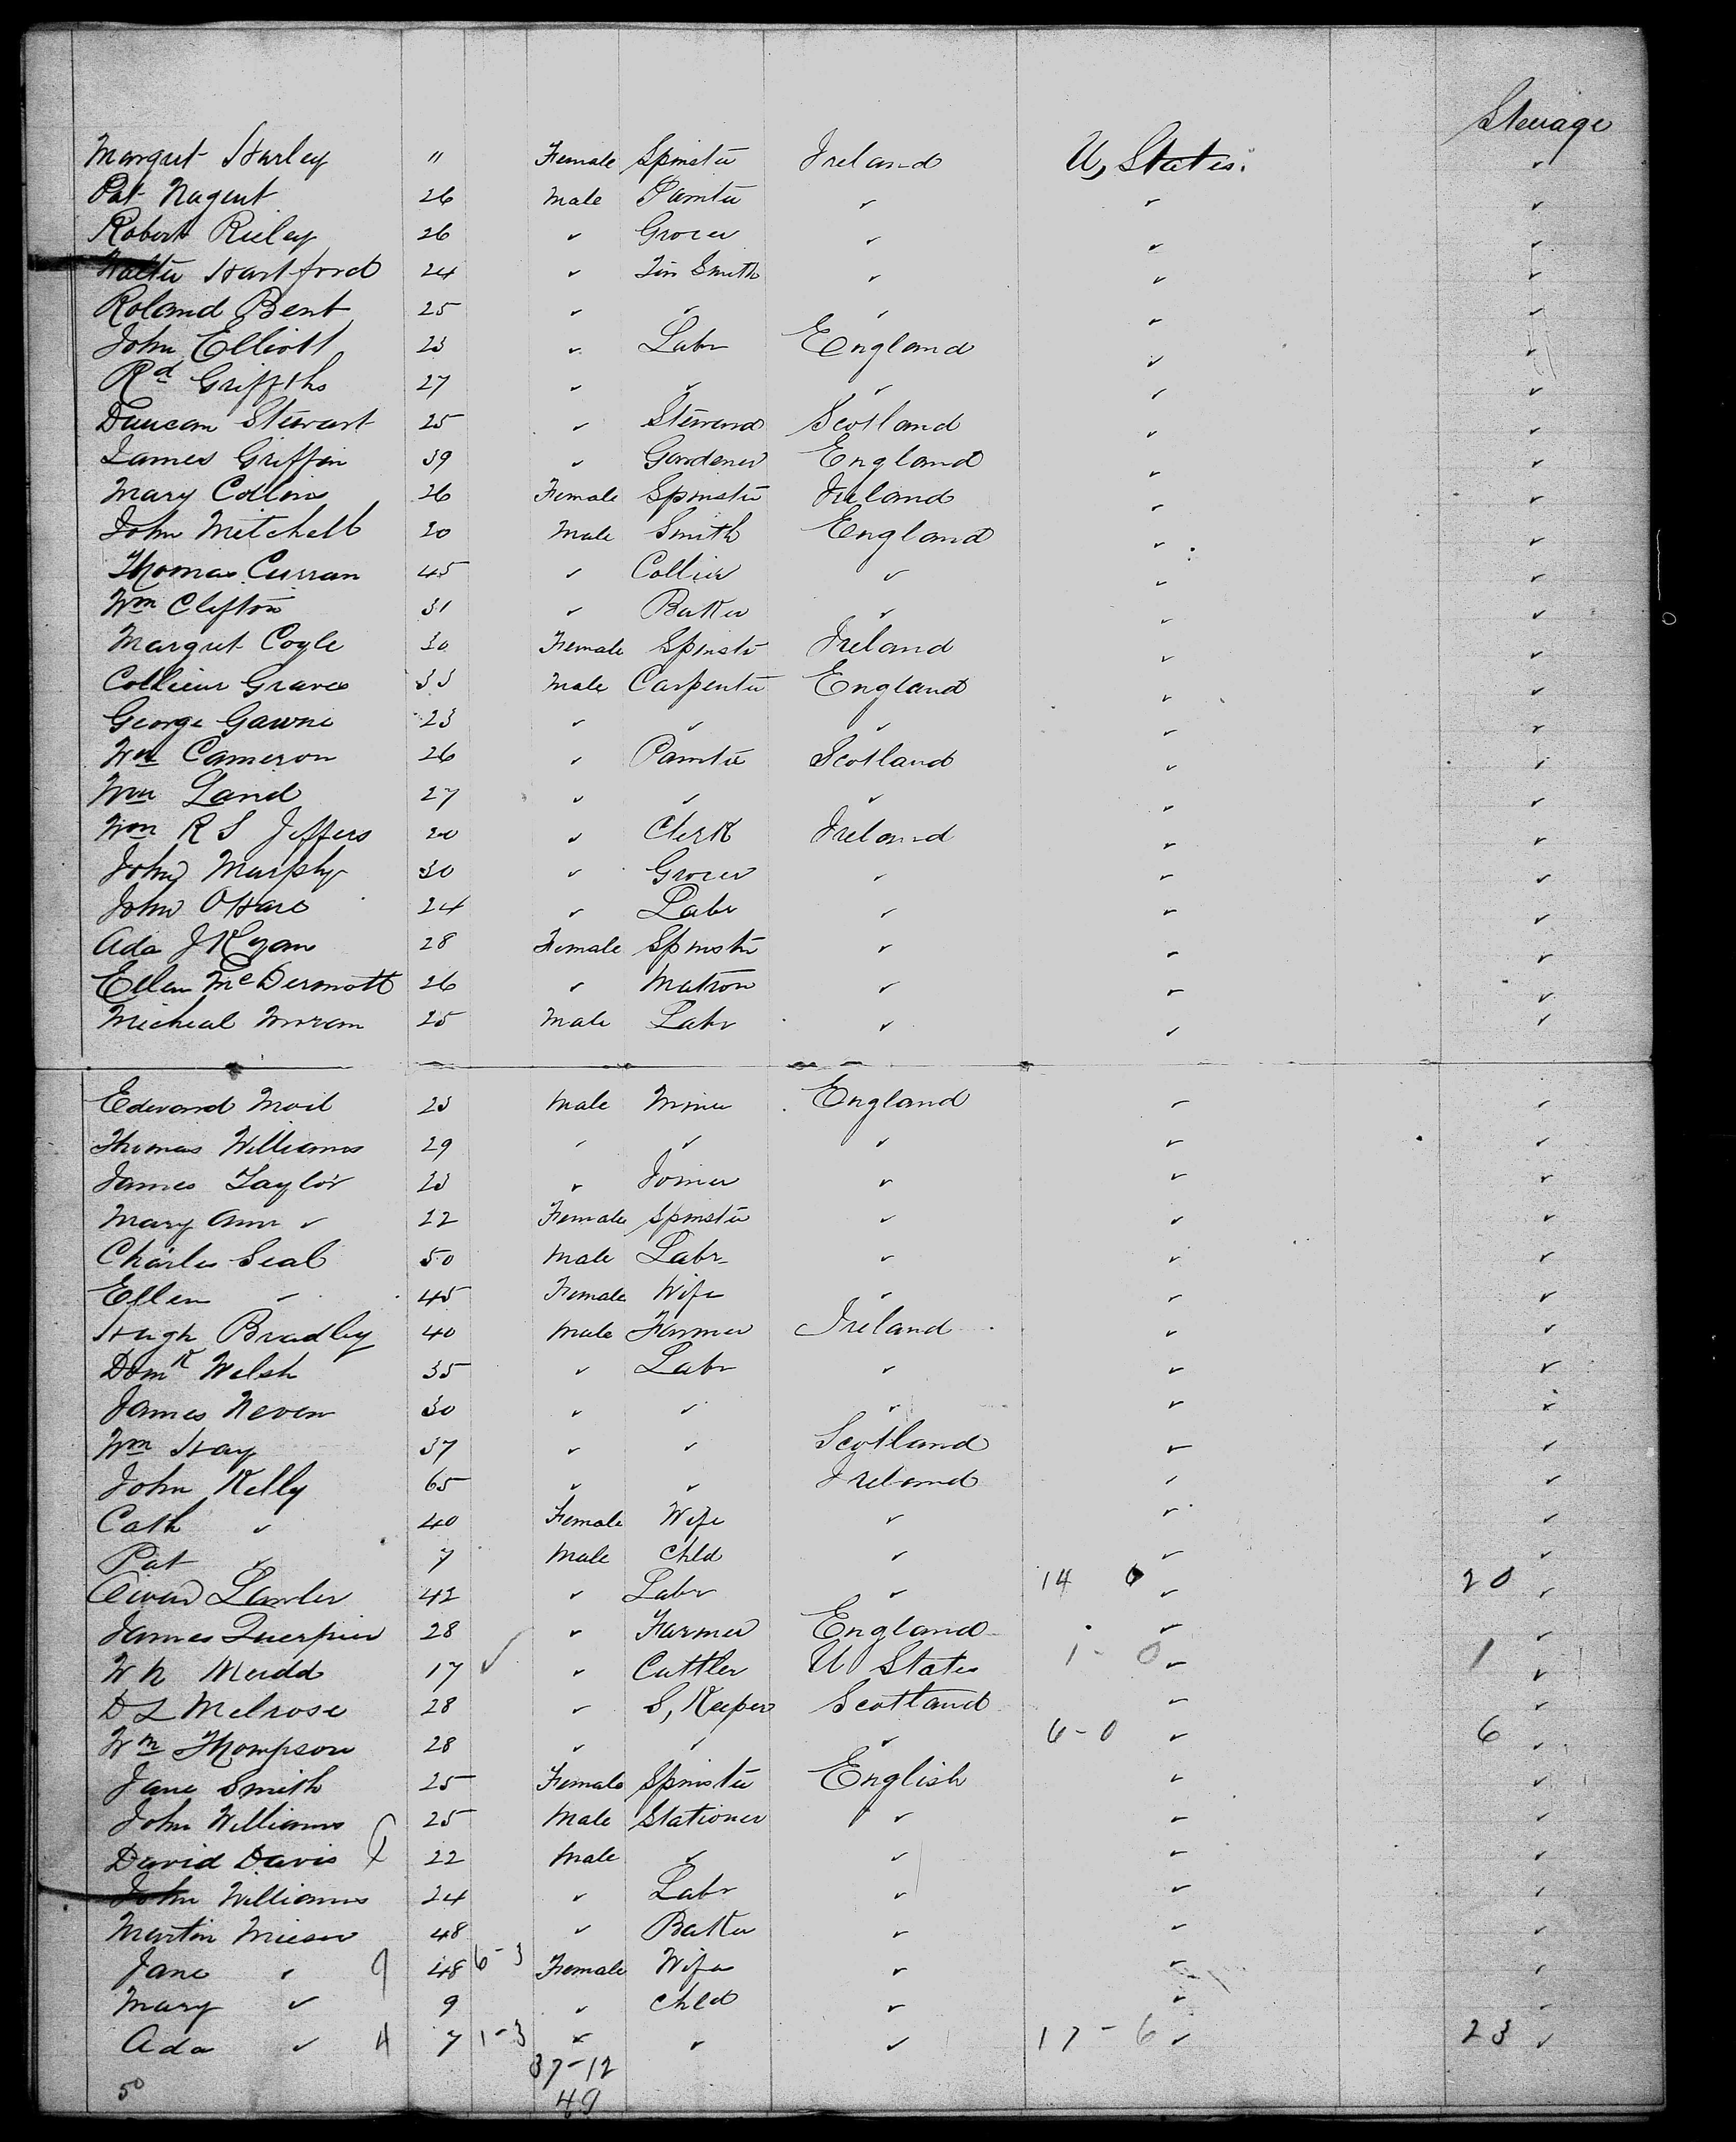 Steerage
Margret Harley " Female Spinster Ireland U, States. ✓
Pat Nugent 26 Male Painter ✓ ✓ ✓
Robert Rieley 26 ✓ Grocer ✓ ✓ ✓
Walter Hartford 24 ✓ Tin Smith ✓ ✓ ✓
Roland Bent 25 ✓ ✓ ✓ ✓ ✓
John Elliott 23 ✓ Labr England ✓ ✓
Rd Griffiths 27 ✓ ✓ ✓ ✓ ✓
Duncan Stewart 25 ✓ Steward Scotland ✓ ✓
James Griffin 39 ✓ Gardener England ✓ ✓
Mary Collins 26 Female Spinster Ireland ✓ ✓
John Mitchell 20 Male Smith England ✓ ✓
Thomas Curran 45 ✓ Collier ✓ ✓ ✓
Wm Clifton 31 ✓ Baker ✓ ✓ ✓
Margret Coyle 30 Female Spinster Ireland ✓ ✓
Graves 33 Male Carpenter England ✓ ✓
George Gawne 23 ✓ ✓ ✓ ✓ ✓
Wm Cameron 26 ✓ Painter Scotland ✓ ✓
Wm Land 27 ✓ ✓ ✓ ✓ ✓
Wm R S Jeffers 20 ✓ Clerk Ireland ✓ ✓
John Murphy 30 ✓ Grocer ✓ ✓ ✓
John OHare 24 ✓ Labr ✓ ✓ ✓
Ada J Ryan 28 Female Spinster ✓ ✓ ✓
Ellen McDermott 26 ✓ Matron ✓ ✓ ✓
Micheal Moran 25 Male Labr ✓ ✓ ✓
Edward 23 Male Miner England ✓ ✓
Thomas Williams 29 ✓ ✓ ✓ ✓ ✓
James Taylor 23 ✓ Joiner ✓ ✓ ✓
Mary Ann ✓ 22 Female Spinster ✓ ✓ ✓
Charles Seal 50 Male Labr ✓ ✓ ✓
Ellen ✓ 45 Female Wife ✓ ✓ ✓
Hugh Bradley 40 Male Farmer Ireland ✓ ✓
Domk Welsh 35 ✓ Labr ✓ ✓ ✓
James Neven 30 ✓ ✓ ✓ ✓ ✓
Wm Hay 37 ✓ ✓ Scotland ✓ ✓
John Kelly 65 ✓ ✓ Ireland ✓ ✓
Cath ✓ 40 Female Wife ✓ ✓ ✓
Pat ✓ 7 Male Chld ✓ ✓ ✓
Owen Lawler 42 ✓ Labr ✓ 14 6 ✓ 20 ✓
James 28 ✓ Farmer England ✓ ✓
W N Mudd 17 ✓ ✓ Cuttler U States 1 - 0 ✓ 1 ✓
D L Melrose 28 ✓ S, Keeper Scotland ✓ ✓
Wm Thompson 28 ✓ ✓ ✓ 6 - 0 ✓ 6 ✓
Jane Smith 25 Female Spinster English ✓ ✓
John Williams 25 Male Stationer ✓ ✓ ✓
David Davis 22 Male ✓ ✓ ✓ ✓
John Williams 24 ✓ Labr ✓ ✓ ✓
Martin 48 ✓ Baker ✓ ✓ ✓
Jane ✓ 48 6 - 3 Female Wife ✓ ✓ ✓
Mary ✓ 9 ✓ Chld ✓ ✓ ✓
Ada ✓ 4 7 1 - 3 ✓ ✓ ✓ 17 - 6 ✓ 23 ✓
37 - 12
50 49